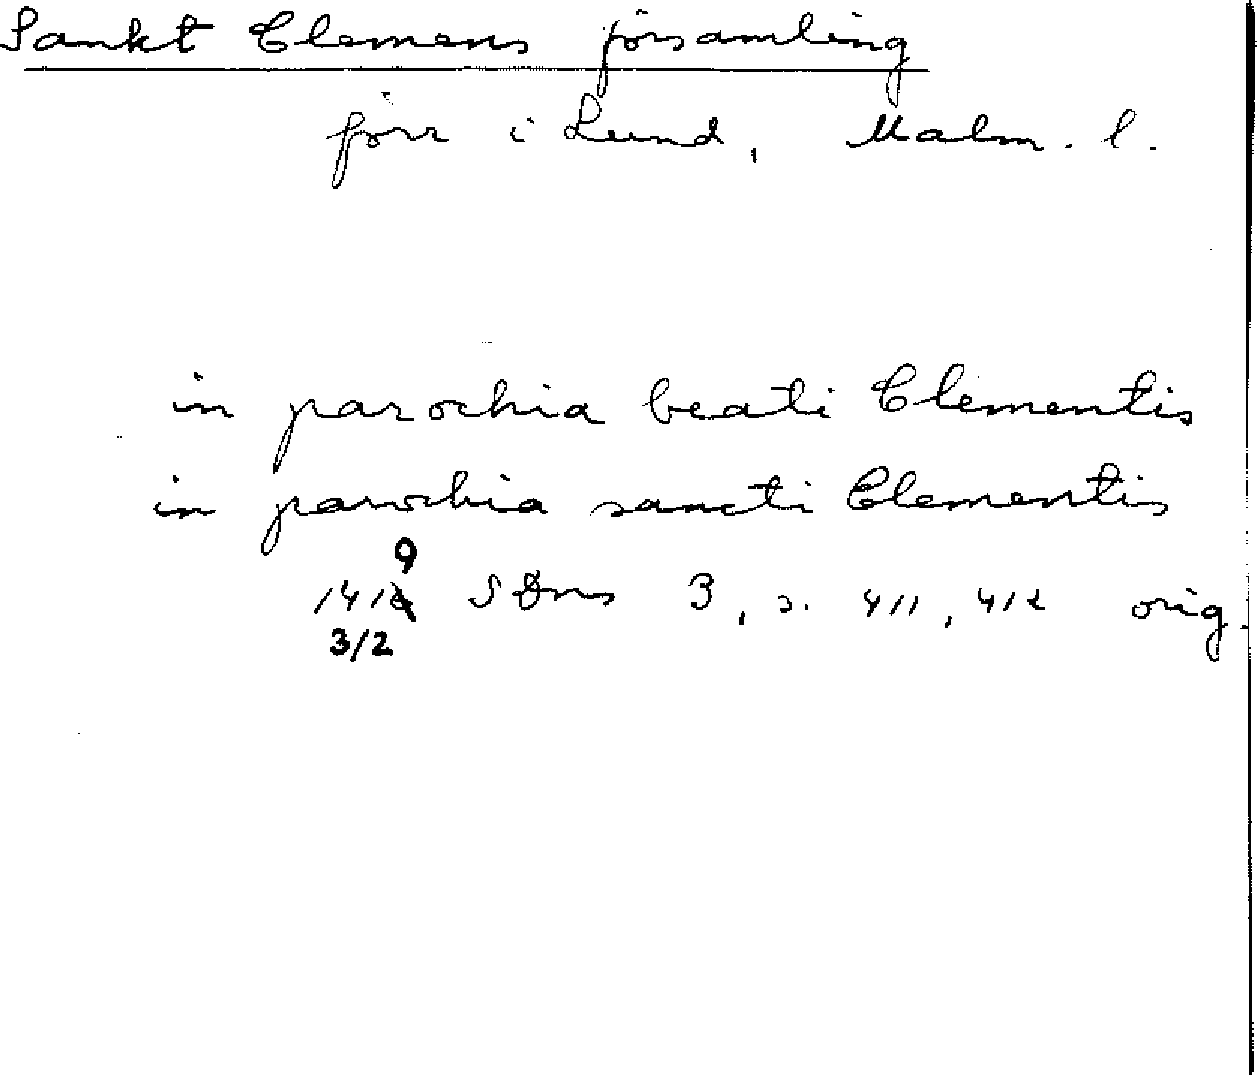 Sankt Clemens församling
förr i Lund, Malm. l.
in parochia beati Clementis
in parochia sancti Clementis
9
141 SDns 3, s. 411, 412 orig.
3/2